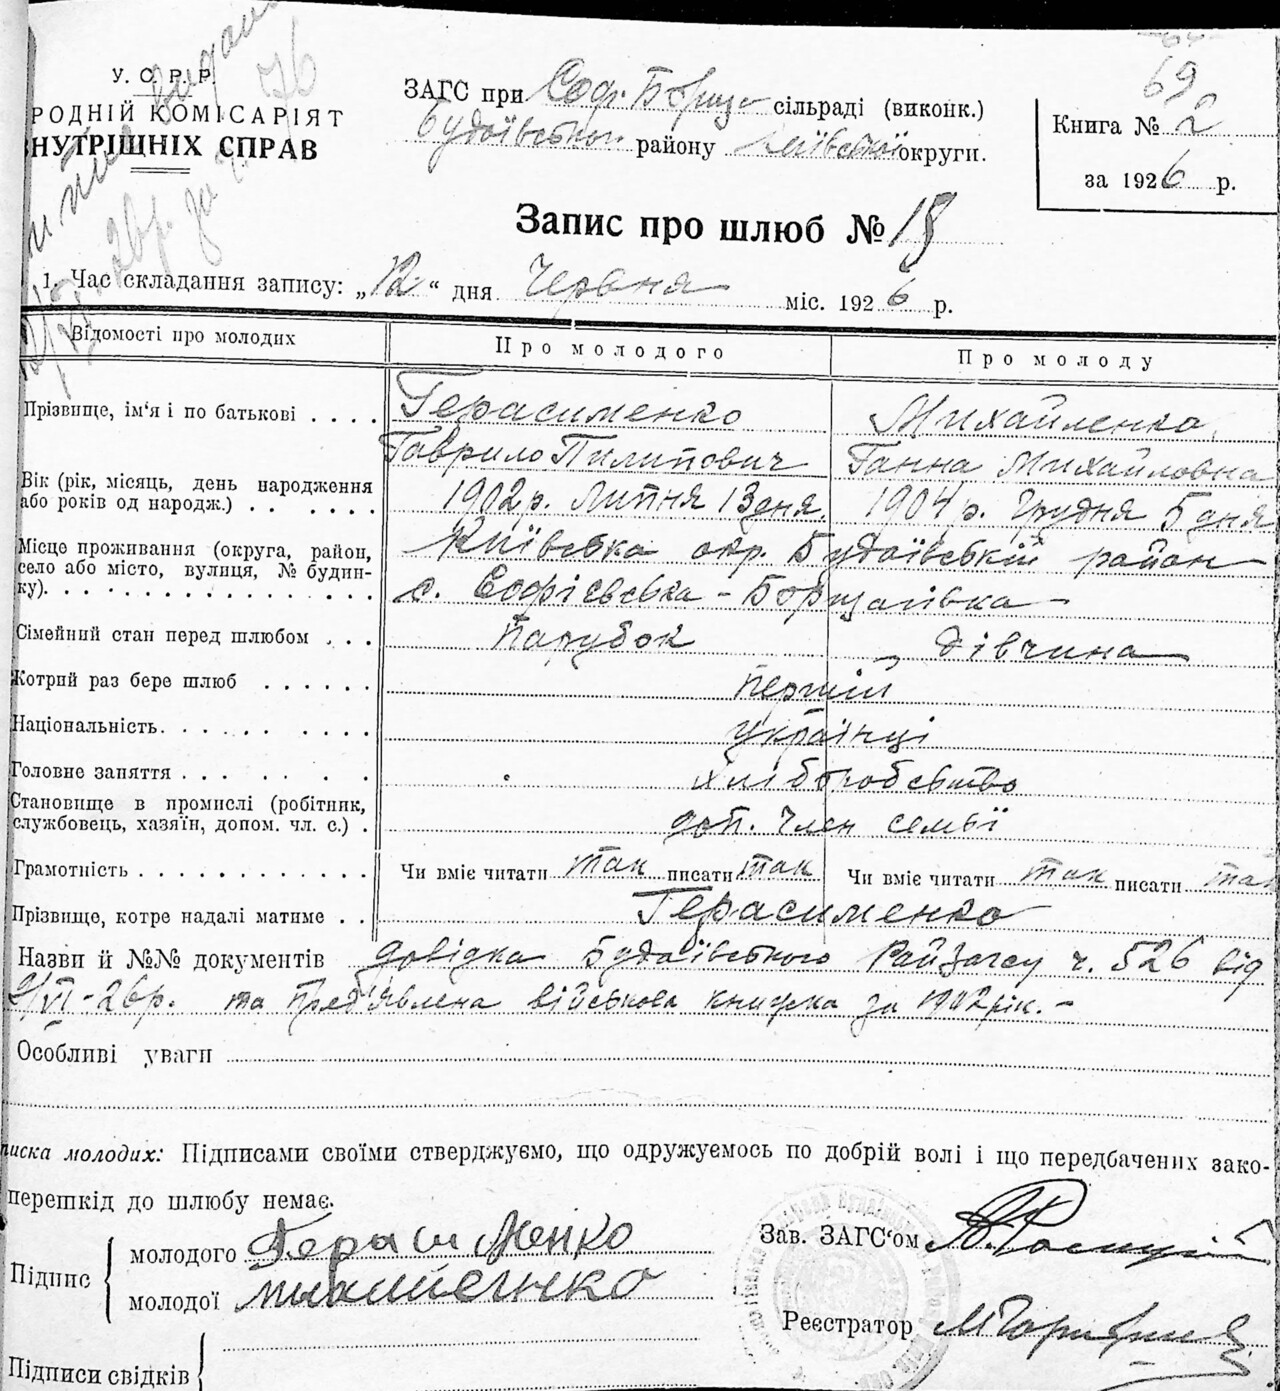 У. С. Р. Р.
РОДНІЙ КОМІСАРІЯТ
НУТРІШНІХ СПРАВ
ЗАГС при Соф. Борща сільраді (виконк.)
Будаївського району Київської округи.
69
Книга № 2
за 1926 р.
Запис про шлюб № 18
1. Час складання запису: „12" дня Червня міс. 1926 р.
Відомості про молодих Про молодого Про молоду
Прізвище, ім'я і по батькові . . . . Герасименко Михайленко
Гаврило Пилипович Ганна Михайловна
Вік (рік, місяць, день народження або років од народж.) . . . . . . 1902 р. Липня 13 дня. 1904 р. Грудня 5 дня
Місце проживання (округа, район, Київська окр. Будаївській район
село або місто, вулиця, № будин-
ку). . . . . . . . . . . . . . . . с. Софієвська - Борщагівка
Сімейний стан перед шлюбом . . . Парубок Дівчина
Котрий раз бере шлюб . . . . . . перший
Національність. . . . . . . . . українці
Головне заняття . . . . . . . хліборобство
Становище в промислі (робітник,
службовець, хазяїн, допом. чл. с.) . доп. член семьї
Грамотність . . . . . . . . . . . . Чи вміє читати так писати так Чи вміє читати так писати так
Прізвище, котре надалі матиме . . Герасименко
Назви й №№ документів довідка Будаївського РайЗагсу ч. 526 від
9/VI-26р. та пред'явлена військова книжка за 1902 рік. -
Особливі уваги
писка молодих: Підписами своїми стверджуємо, що одружуємось по добрій волі і що передбачених зако-
перешкід до шлюбу немає.
Підпис
молодого Герасименко
молодої
Зав. ЗАГС'ом
Реєстратор
Підписи свідків